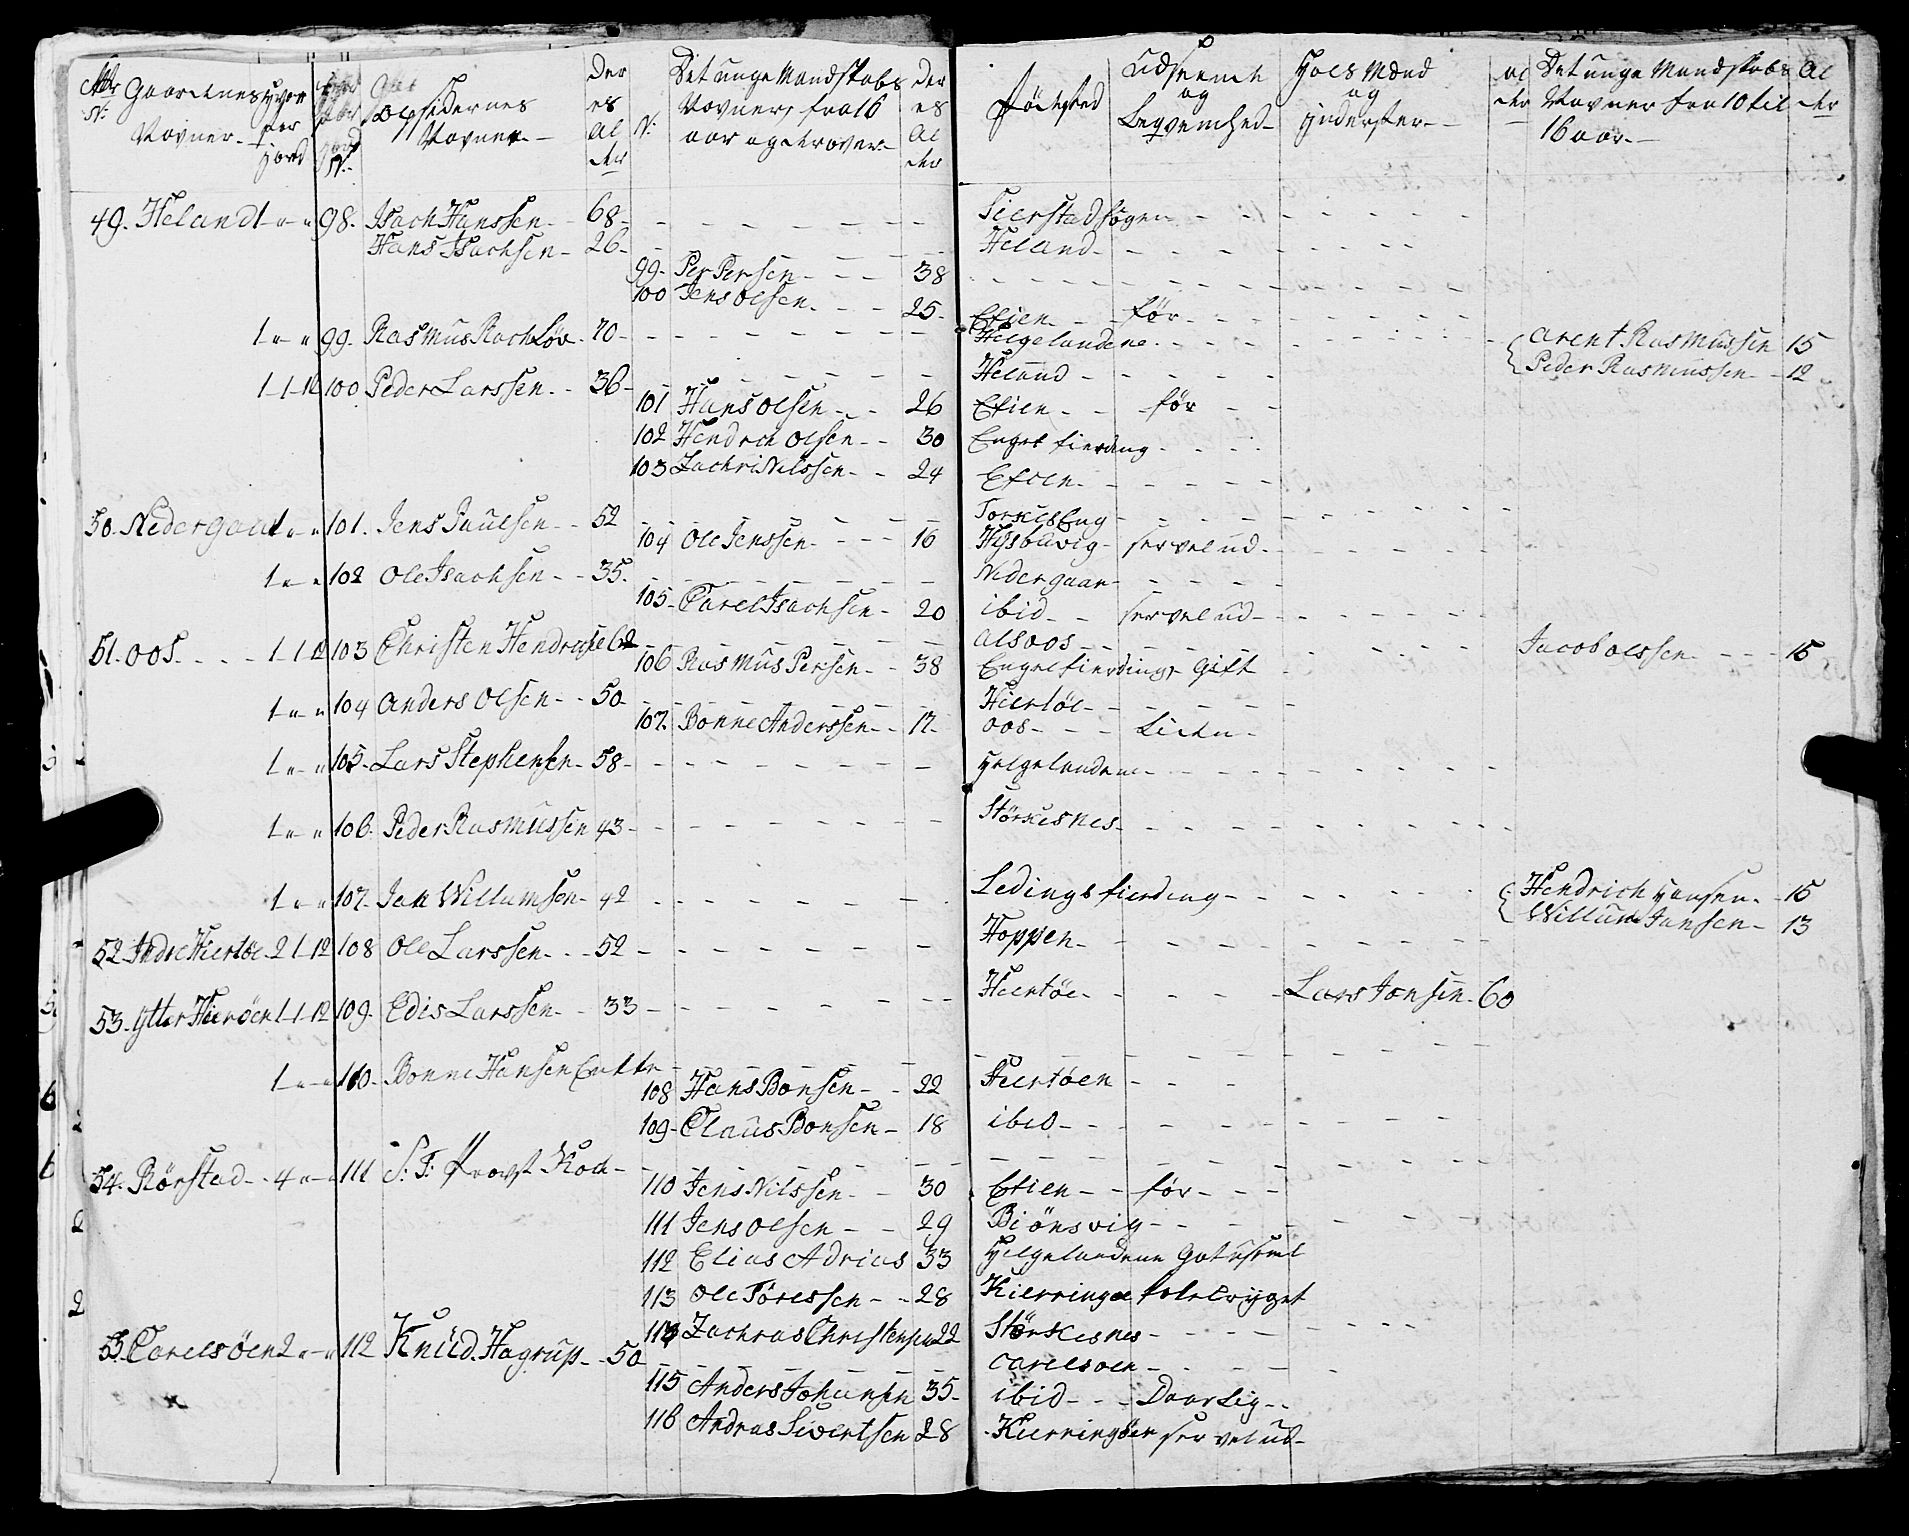 No: Gaardenes Navner - hver der jord No: Opsidernes Navner - Deres Alder No: Det unge Mandskabs Navner, fra 16 aar og derover - Deres Alder Fødested Udseende og Beqvemhed - Huus Mænd og Inderster - alder Det unge Mandskabs Navner fra 10 til 16 aar - Alder
49. Heland 1 " " 98. Isach Hanssen - 68 - Sierstad sogen
Hans Isachsen - 26 - Heland
99. Per Persen - 38
100 Jens Olsen - 25 - Efien - før
1 " " 99. Rasmus Rachløv - 70 - Helgelandene - Arent Rasmussen 15
Peder Rasmussen - 12
1-1- 100 Peder Larssen - 36 - Heland
101 Hans Olsen - 26 Efien - før
102 Hendrich Olsen - 30 Engel fierding
103 Zachri Nilssen - 24 Efien
50. Nedergaard 1 " " 101. Jens Paulsen - 52
104 Ole Jenssen - 16 Hysbuvig - ser vel ud
1 " " 102 Ole Isachsen - 35. Nedergaar
105 Carel Isachsen - 20 ibid - ser vel ud
51. oos - 1-1-12 103 Christen Hendrichse 62 - Alsoos - Jacob olssen - 15
106 Rasmus Persen - 38 Engelfierding - Gift
1 " " 104 Anders Olsen - 50 - Hiertøe
107. Bonne Anderssen - 17 - oos - Liden
1 " " 105 - Lars Stephensen - 58 - Helgelandene
1 " " 106 - Peder Rasmussen 43 - Størkesnes
1 " " 107. Jan Willumsen - 42 - Ledings fierding - Hendrich Hansen - 15
Willum Jansen - 13
52 Indre Hiertøe - 2-1-12 108 Ole Larssen - 52 - Hoppen
53. Ytter Hierøen 1-1-12 109. Edis Larssen - 33 - Hiertøe - Lars Jonsen - 60
1 " " 110 - Bonne Hansen Enkke
108 Hans Bonsen - 22 Hiertøen
109 - Claus Bonsen - 18 ibid
54. Rørstad - 4 " " 111 S: T: Provst Kock
110 Jens Nilssen - 30 Efien - før
111 Jens Olsen - 29 Biønsvig
112 Elias Adrias 33 Helgelandene
113 Ole Tøressen - 28 Kierringøe
114 Zachras Christensen 22 Størkesnes
55. Carelsøen 2 " " 112 Knud Hagrup - 50 - Carelsoen
115 Anders Johansen 35 - ibid - Daarlig
116 Andras Sivertsen 28 - Kierringøen ser vel ud